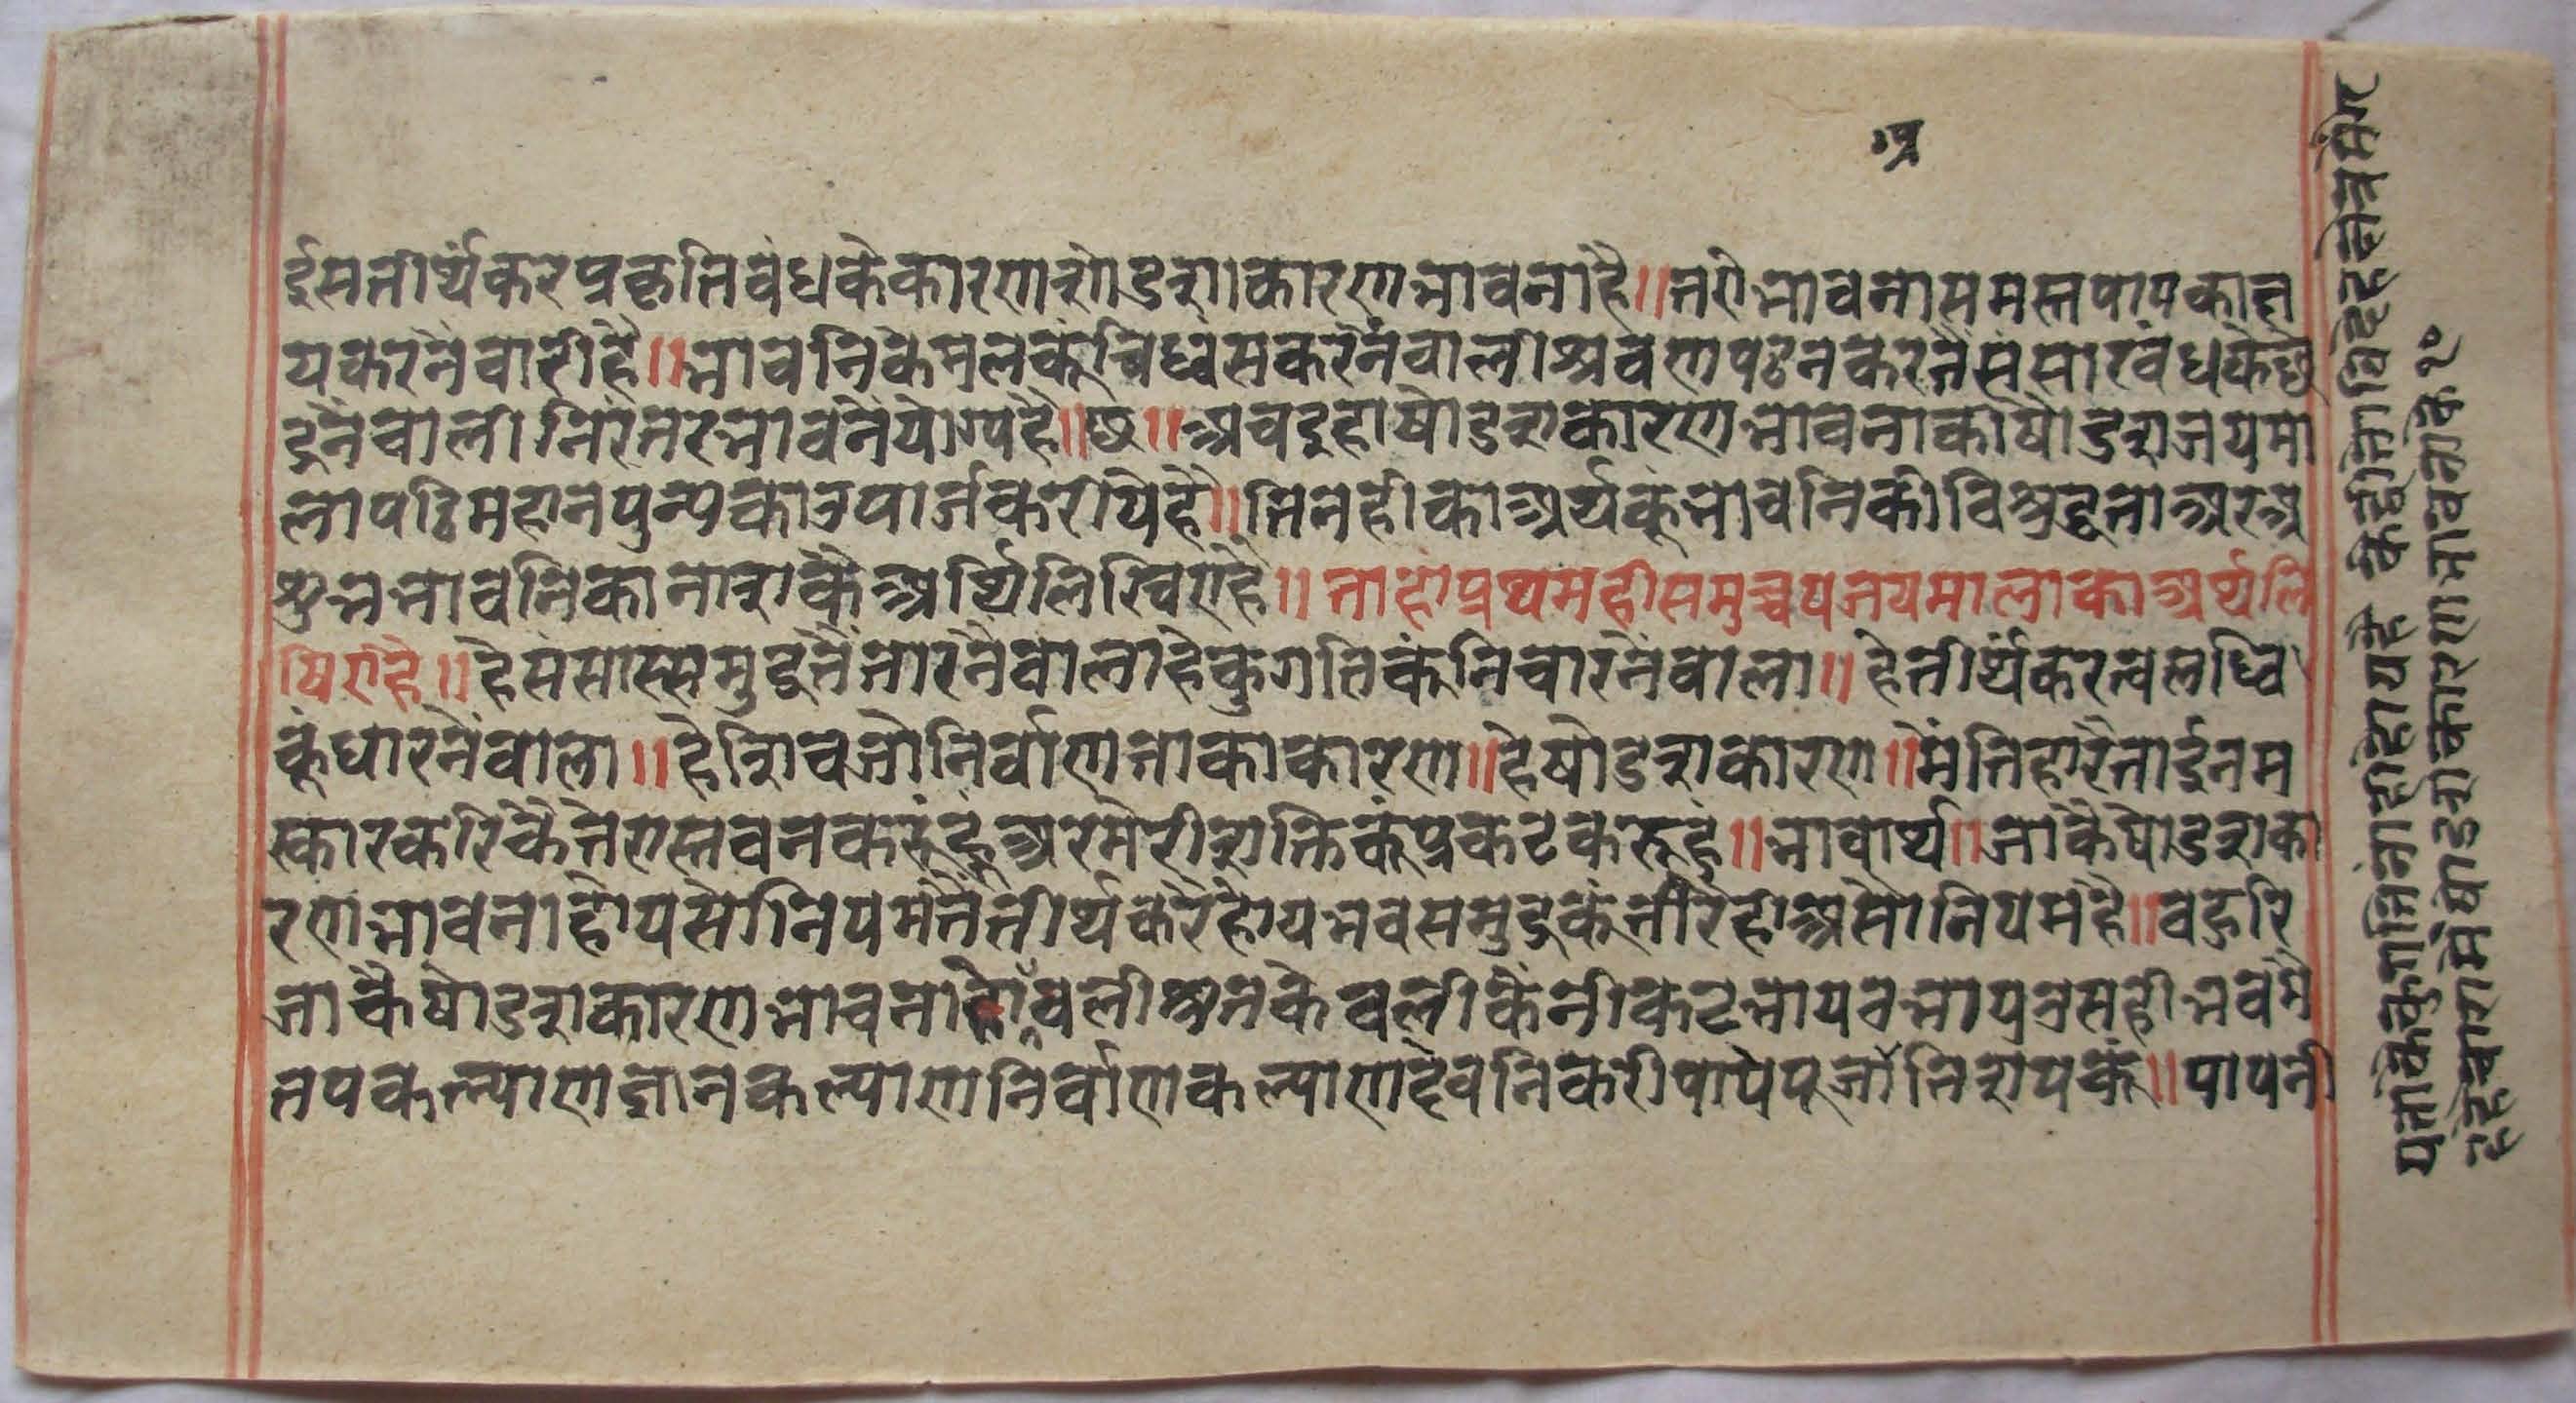 ईसतीर्थंकरप्रकृतिबंधकेकारणशोडशकारणभावनाहै॥तणेभावनासमस्तपापकाक्ष
यकरनैवारीहै॥भावनिकेमलकूंविध्वंसकरनेंवालीश्रवणपठनकरतेंसंसारबंधकेछे
दनेंवालीनिरंतरभावनेंयोग्यहै॥छ॥अवइहाषोडशकारणभावनाकीषोडशजयमा
लापढिमहानपुन्यकाउपार्जकरीयेहै॥तिनहीकाअर्थकूंभावनिकीविशुद्धताअरअ
शुभभावनिकानाशकेअर्थिलिखिएहै॥ताहांप्रथमहीसमुच्चयजयमालाकाअर्थलि
षिएहै॥हेसंसारसमुद्रतेंतारनेंवालाहेकुगतिकूंनिवारनेंवाला॥हेतीर्थंकरत्वलब्धि
कूंधारनेंवाला॥हेशिवजोनिर्वाणताकाकारण॥हेषोडशकारण॥मैंतिहारैताईनम
स्कारकरिकैतेरास्तवनकरूंहूंअरमेरीशक्तिकूंप्रकटकरूहूं॥भावार्थ॥जाकैषोडशका
रणभावनाहोयसोनियमतेंतीर्थंकरहोयभवसमुद्रकूंतीरैहीअसोनियमहै॥बहुरि
जाकैषोडशकारणभावनाहोकेवलीश्रुतकेवलीकेंनीकटभायवभायउसहीभवमें
तपकल्याणज्ञानकल्याणनिर्वाणकल्याणदेवनिकरीपायपूजांतिशयकूं॥पापनी
यताकेकुगतिनांहीहोयहै केईतोविदेहक्षेत्रमें
षोडशकारणभावनाके १०